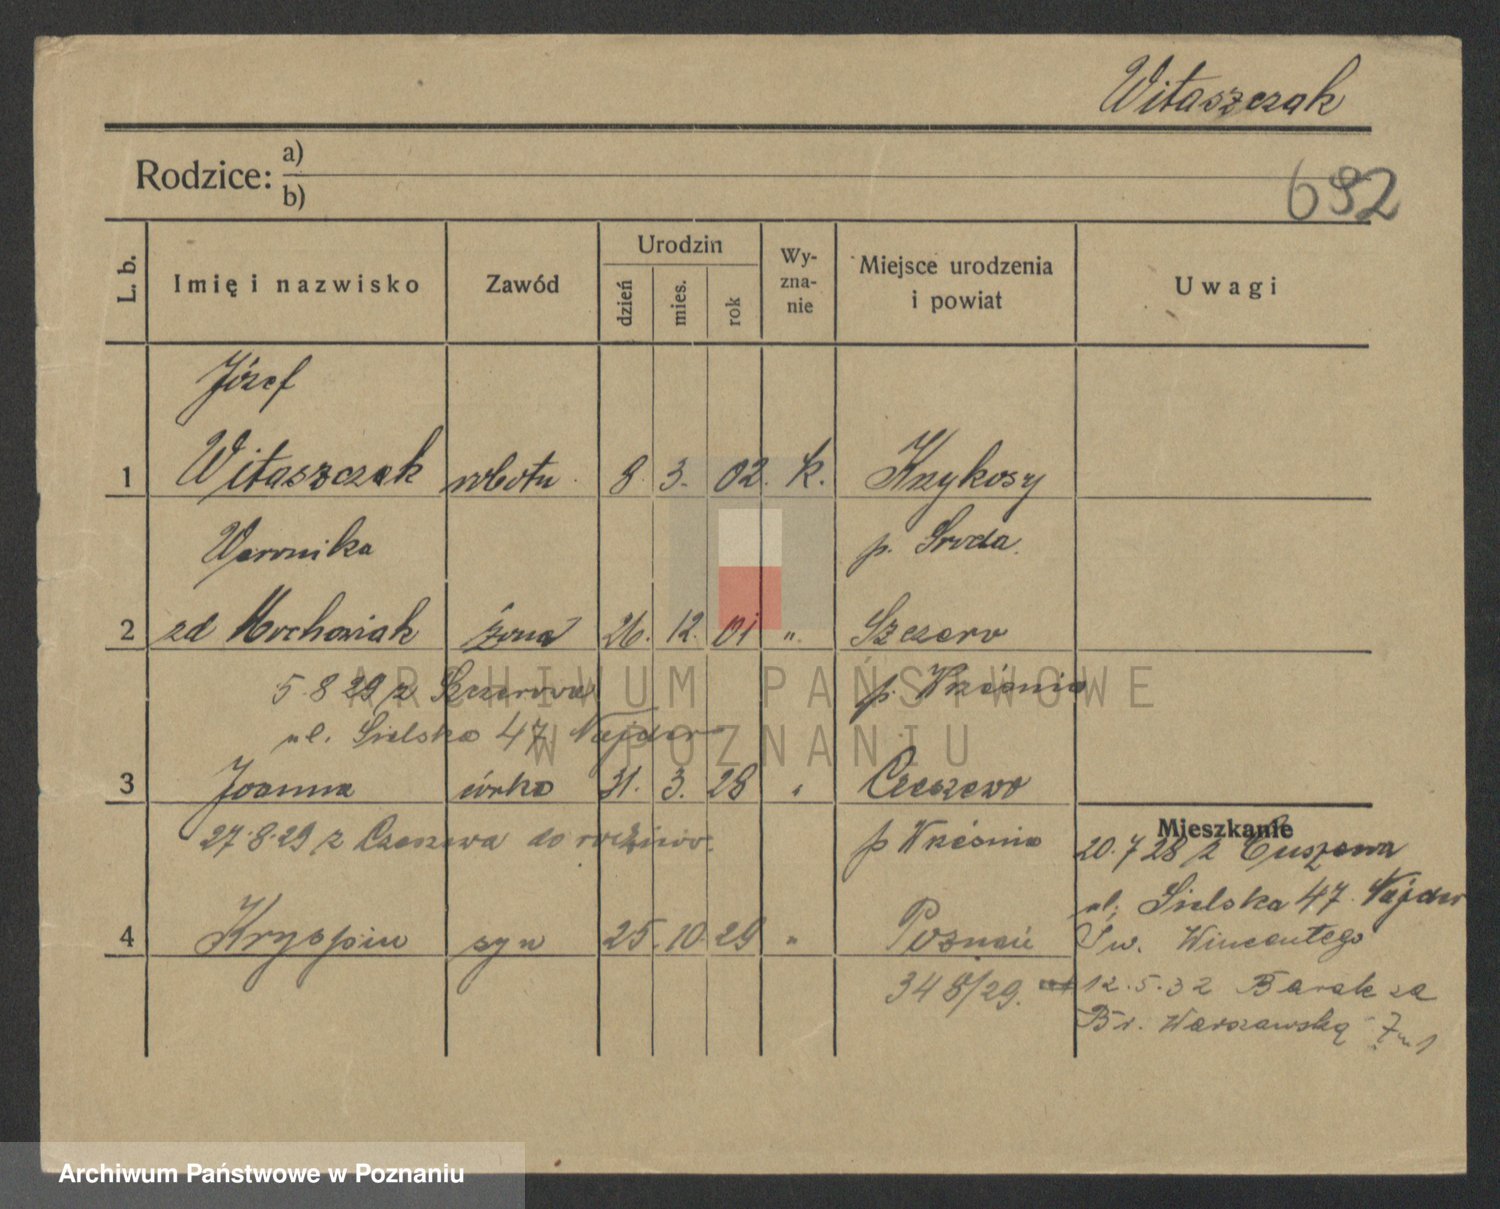 Witaszczak
Rodzice: a)
b)
692
L. b.
Imię i nazwisko
Zawód
Urodzin
dzień
mies.
rok
Wy-
zna-
nie
Miejsce urodzenia
i powiat
Uwagi
Józef
1 Witaszczak robotn. 8. 3. 02. k. Krzykosy
Weronika p. Środa.
2 zd Mochowiak żona 26. 12. 01 „ Szczero
5.8 29 z p. Września
ul. Sielska 47 Najder
3 Joanna córka 31. 3. 28 „ Czeszewo
27.8.29 z Czeszewa do rodziców. p Września
4 Kryspin syn 25. 10. 29 „ Poznań
348/29.
Mieszkanie
20.7 28 z
ul. Sielska 47. Najder
Św. Wincentego
12.5.32 Barak za
Br. Warszawską 7 m 1
ARCHIWUM PAŃSTWOWE
W POZNANIU
Archiwum Państwowe w Poznaniu